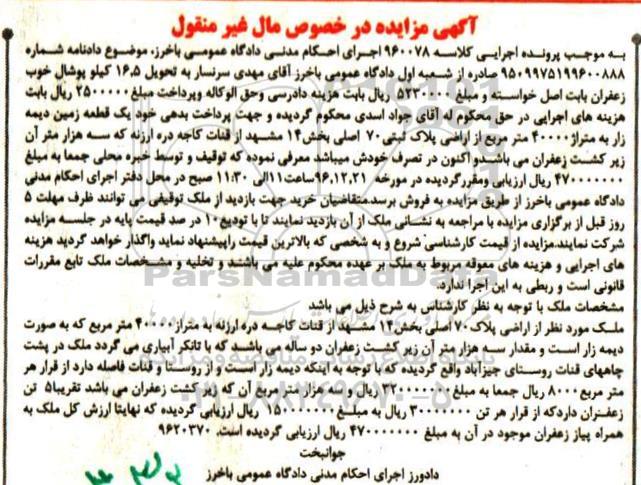 آگهی مزایده در خصوص مال غیر منقول
به موجب پرونده اجرایی کلاسه ۹۶۰۰۷۸ اجرای احکام مدنی دادگاه عمومی باخرز. موضوع دادنامه شماره
۹۵۰۹۹۷۵۱۹۹۶۰۰۸۸۸ صادره از شعبه اول دادگاه عمومی باخرز آقای مهدی سرنسار به تحویل ۱۶,۵ کیلو پوشال خوب
زعفران بابت اصل خواسته و مبلغ ۵۲۳۰۰۰۰ ریال بابت هزینه دادرسی وحق الوکاله وپرداخت مبلغ ۲۵۰۰۰۰۰ ریال بابت
هزینه های اجرایی در حق محکوم له آقای جواد اسدی محکوم گردیده و جهت پرداخت بدهی خود یک قطعه زمین دیمه
زار به متراژ۴۰۰۰۰ متر مربع از اراضی پلاک ثبتی۷۰ اصلی بخش۱۴ مشهد از قنات کاجه دره ارزنه که سه هزار متر آن
زیر کشت زعفران می باشدو اکنون در تصرف خودش میباشد معرفی نموده که توقیف و توسط خبره محلی جمعا به مبلغ
۴۷۰۰۰۰۰۰۰ ریال ارزیابی ومقررگردیده در مورخه ۹۶,۱۲,۲۱ساعت۱۱الی ۱۱:۳۰ صبح در محل دفتر اجرای احکام مدنی
دادگاه عمومی باخرز از طریق مزایده به فروش برسد.متقاضیان خرید جهت بازدید از ملک توقیفی می توانند ظرف مهلت ۵
روز قبل از برگزاری مزایده با مراجعه به نشانی ملک از آن بازدید نمایند تا با تودیع۱۰ در صد قیمت پایه در جلسه مزایده
شرکت نمایند.مزایده از قیمت کارشناسی شروع و به شخصی که بالاترین قیمت راپیشنهاد نماید واگذار خواهد گردید هزینه
های اجرایی و هزینه های معوقه مربوط به ملک بر عهده محکوم علیه می باشند و تخلیه و مشخصات ملک تابع مقررات
قانونی است و ربطی به این اجرا ندارد.
مشخصات ملک با توجه به نظر کارشناس به شرح ذیل می باشد
ملک مورد نظر از اراضی پلاک۷۰ اصلی بخش۱۴ مشهد از قنات کاجه دره ارزنه به متراژ۴۰۰۰۰ متر مربع که به صورت
دیمه زار است و مقدار سه هزار متر آن زیر کشت زعفران دو ساله می باشد که با تانکر آبیاری می گردد ملک در پشت
چاههای قنات روستای جیزآباد واقع گردیده که با توجه به اینکه دیمه زار است و از روستا و قنات فاصله دارد از قرار هر
متر مربع ۸۰۰۰ ریال جمعا به مبلغ ۳۲۰۰۰۰۰۰۰ ریال و سه هزار متر مربع آن که زیر کشت زعفران می باشد تقریبا۵ تن
زعفران داردکه از قرار هر تن ۳۰۰۰۰۰۰۰ ریال به مبلغ ۱۵۰۰۰۰۰۰۰ ریال ارزیابی گردیده که نهایتا ارزش کل ملک به
همراه پیاز زعفران موجود در آن به مبلغ ۴۷۰۰۰۰۰۰۰ ریال ارزیابی گردیده است. ۹۶۲۰۳۷۰
جوانبخت
دادورز اجرای احکام مدنی دادگاه عمومی باخرز
ParsNamadData
۰۲۱-۸۸۳۴۹۶۷۰-۵